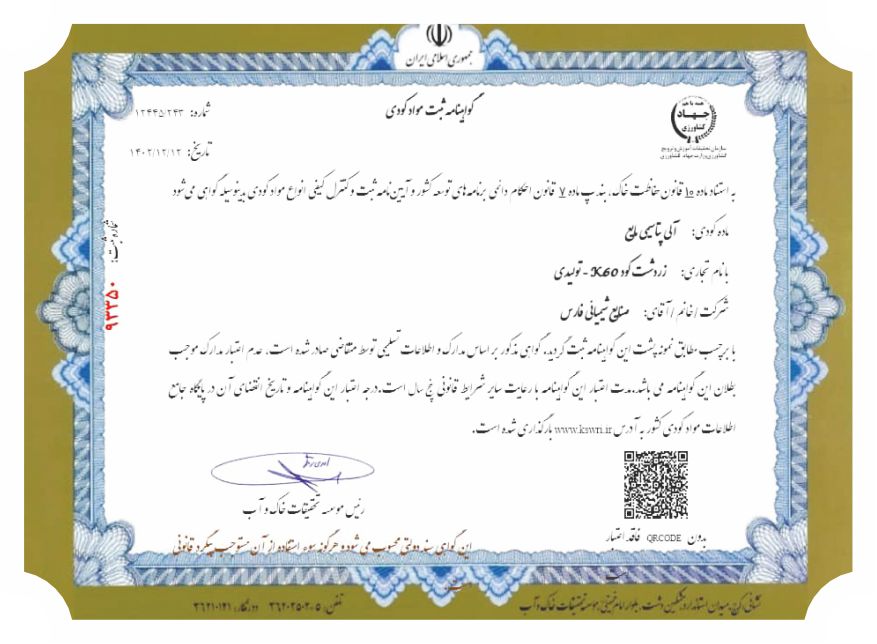 جمهوری اسلامی ایران
گواهینامه ثبت مواد کودی
شماره: ۱۲۴۴۵/۲۴۳
تاریخ: ۱۴۰۲/۱۲/۱۲
همه با هم
جهاد
کشاورزی
سازمان تحقیقات آموزش و ترویج
کشاورزی وزارت جهاد کشاورزی
به استناد ماده ۱۰ قانون حفاظت خاک، بند پ ماده ۷ قانون احکام دائمی برنامه های توسعه کشور و آیین نامه ثبت و کنترل کیفی انواع مواد کودی بدینوسیله گواهی می شود
ماده کودی: آلی پتاسیمی مایع
با نام تجاری: زردشت کود K60 - تولیدی
شرکت / خانم / آقای: صنایع شیمیائی فارس
شماره ثبت: ۹۳۳۵۰
با برچسب مطابق نمونه پشت این گواهینامه ثبت گردید، گواهی مذکور بر اساس مدارک و اطلاعات تسلیمی توسط متقاضی صادر شده است. عدم اعتبار مدارک موجب
بطلان این گواهینامه می باشد. مدت اعتبار این گواهینامه با رعایت سایر شرایط قانونی پنج سال است. درجه اعتبار این گواهینامه و تاریخ انقضای آن در پایگاه جامع
اطلاعات مواد کودی کشور به آدرس www.kswri.ir بارگذاری شده است.
رئیس موسسه تحقیقات خاک و آب
بدون QRCODE فاقد اعتبار
است
این گواهی سند دولتی محسوب می شود و هرگونه سوء استفاده از آن مستوجب پیگرد قانونی
است.
نشانی: کرج، میدان استاندارد، مشکین دشت، بلوار امام خمینی، موسسه تحقیقات خاک و آب
تلفن: ۵-۳۶۲۰۲۵۰۲ دورنگار: ۳۶۲۱۰۱۲۱